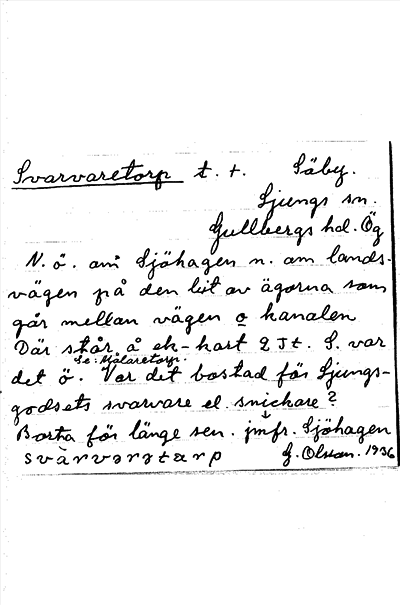 Svarvaretorp t. t. Säby.
Ljungs sn.
Gullbergs hd. Ög
N. ö. om Sjöhagen n. om lands-
vägen på den bit av ägorna som
går mellan vägen o kanalen
Där står å ek-kart 2 Jt. S. var
Se: Målaretorp.
det ö. Var det bostad för Ljungs-
godsets svarvare el. snickare?
Borta för länge sen. jmfr. Sjöhagen
svàrvarətarp G. Olsson. 1936